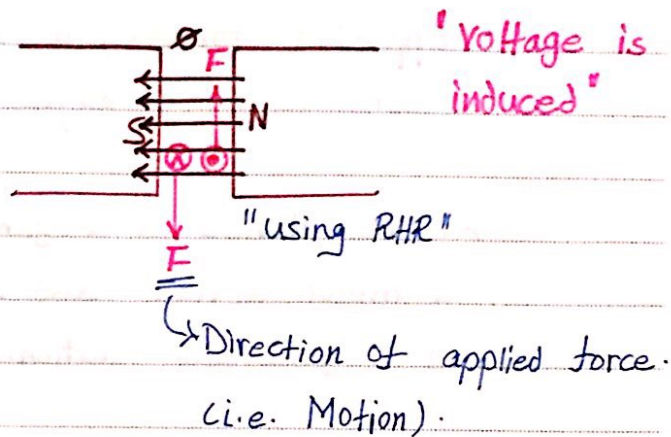 "Voltage is
induced"
Ø
F
S
N
"using RHR"
F
Direction of applied force.
(i.e. Motion).